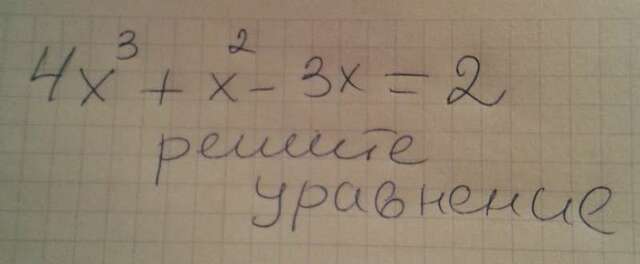 4x³ + x² - 3x = 2
решите
уравнение